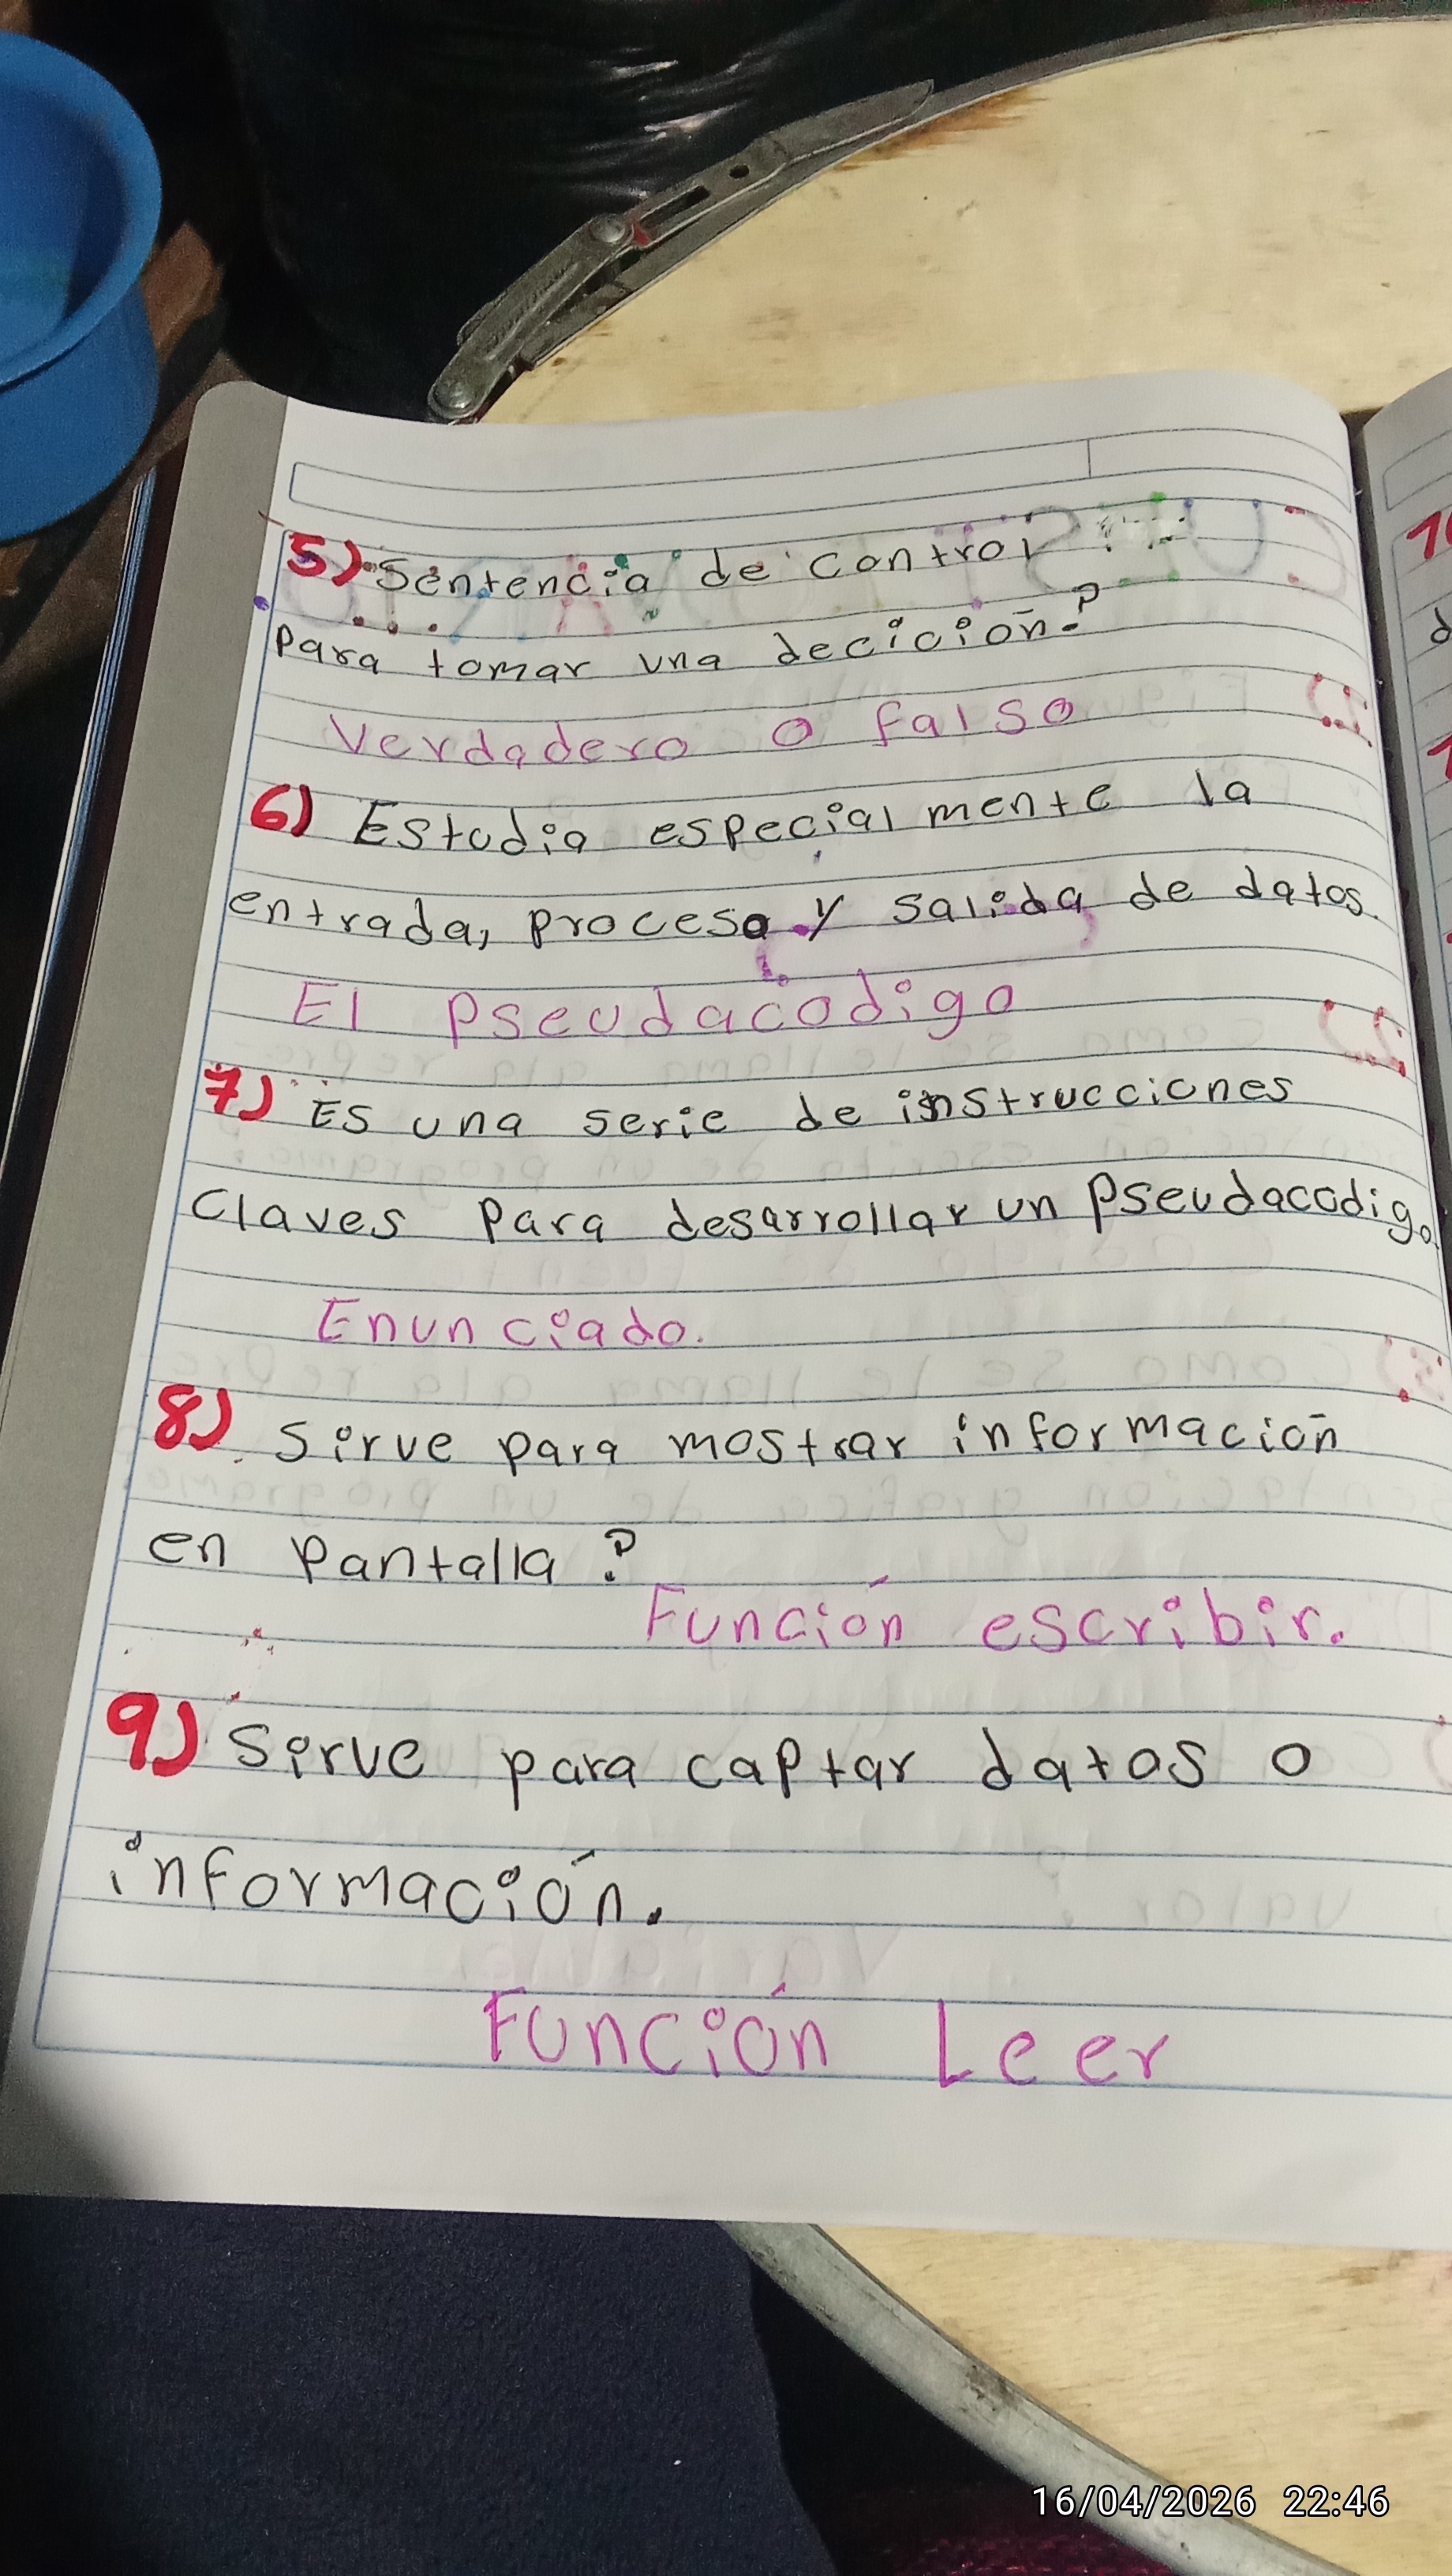 5) Sentencia de control
para tomar una decición?
Verdadero o falso
6) Estudia especialmente la
entrada, proceso y salida de datos.
El pseudacodigo
7) Es una serie de instrucciones
claves para desarrollar un pseudacodigo.
Enunciado.
8) Sirve para mostrar información
en pantalla?
Función escribir.
9) Sirve para captar datos o
información.
Función Leer
16/04/2026 22:46